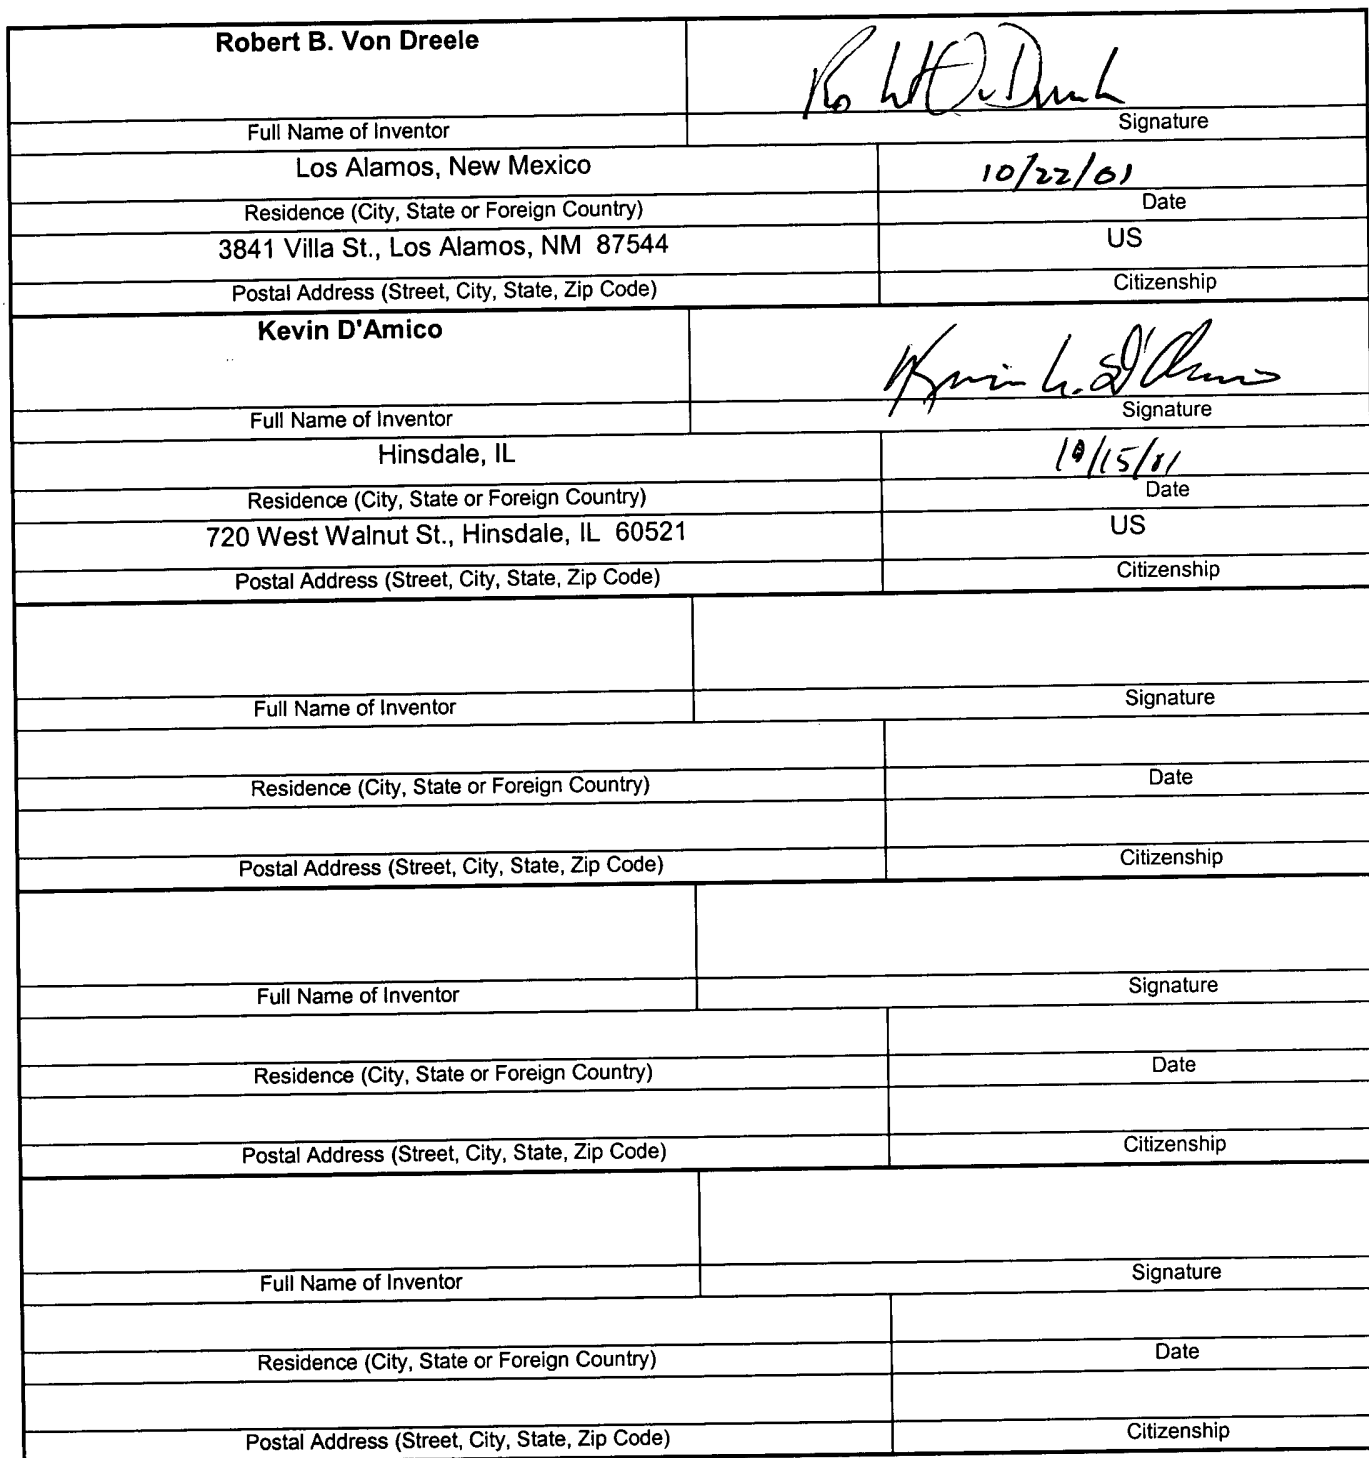 Robert B. Von Dreele
Full Name of Inventor Signature
Los Alamos, New Mexico 10/22/01
Residence (City, State or Foreign Country) Date
3841 Villa St., Los Alamos, NM 87544 US
Postal Address (Street, City, State, Zip Code) Citizenship
Kevin D'Amico Kevin L. D'Amico
Full Name of Inventor Signature
Hinsdale, IL 10/15/01
Residence (City, State or Foreign Country) Date
720 West Walnut St., Hinsdale, IL 60521 US
Postal Address (Street, City, State, Zip Code) Citizenship
Full Name of Inventor Signature
Residence (City, State or Foreign Country) Date
Postal Address (Street, City, State, Zip Code) Citizenship
Full Name of Inventor Signature
Residence (City, State or Foreign Country) Date
Postal Address (Street, City, State, Zip Code) Citizenship
Full Name of Inventor Signature
Residence (City, State or Foreign Country) Date
Postal Address (Street, City, State, Zip Code) Citizenship